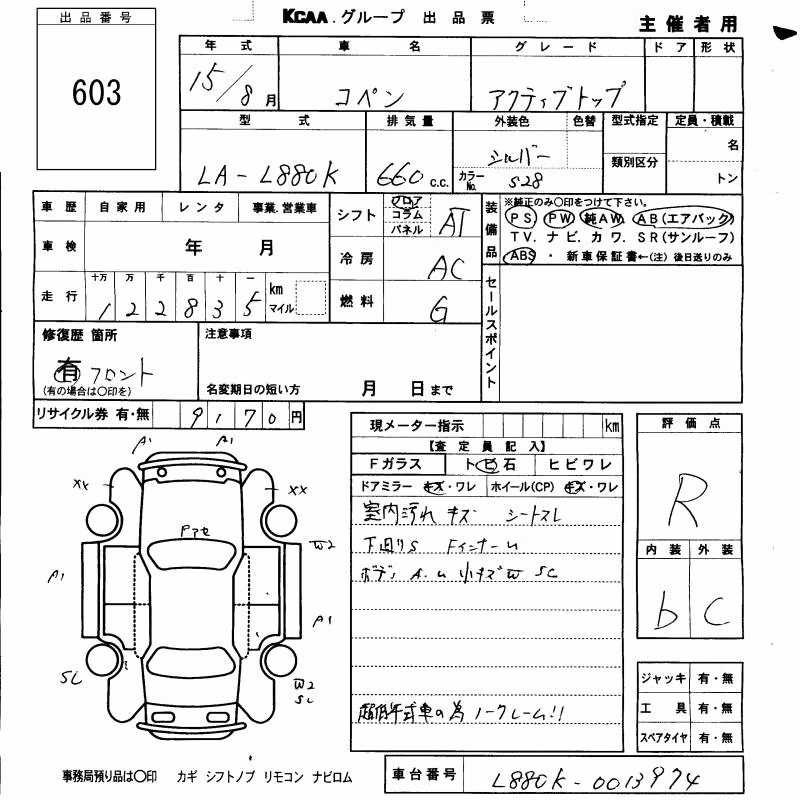 出品番号
603
KCAA.グループ 出品票
主催者用
年式 車名 グレード ドア 形状
15/8月 コペン アクティブトップ
型式 排気量 外装色 色替 型式指定 定員・積載
LA-L880K 660c.c. シルバー 類別区分 名
カラーNo. S28 トン
車歴 自家用 レンタ 事業.営業車
車検 年 月
走行 十万 万 千 百 十 一
122835 km マイル
シフト フロア コラム パネル AT
冷房 AC
燃料 G
装備品
※純正のみ○印をつけて下さい。
PS PW 純AW. AB(エアバック)
TV. ナビ. カワ. SR(サンルーフ)
ABS ・ 新車保証書←(注)後日送りのみ
セールスポイント
修復歴 箇所
有 フロント
(有の場合は○印を)
注意事項
名変期日の短い方 月 日まで
リサイクル券 有・無 9170円
現メーター指示 km
【査定員記入】
Fガラス トビ石 ヒビワレ
ドアミラー キズ・ワレ ホイール(CP) キズ・ワレ
室内汚れ キズ シートスレ
下廻りS Fインナーム
ボデー A.U 小キズW SC
超低年式車の為 ノークレーム!!
評価点
R
内装 外装
b C
ジャッキ 有・無
工具 有・無
スペアタイヤ 有・無
A1 A1
XX XX
Pアセ
W2
A1
A1
SC
W2
SC
事務局預り品は○印 カギ シフトノブ リモコン ナビロム
車台番号 L880K-0013974